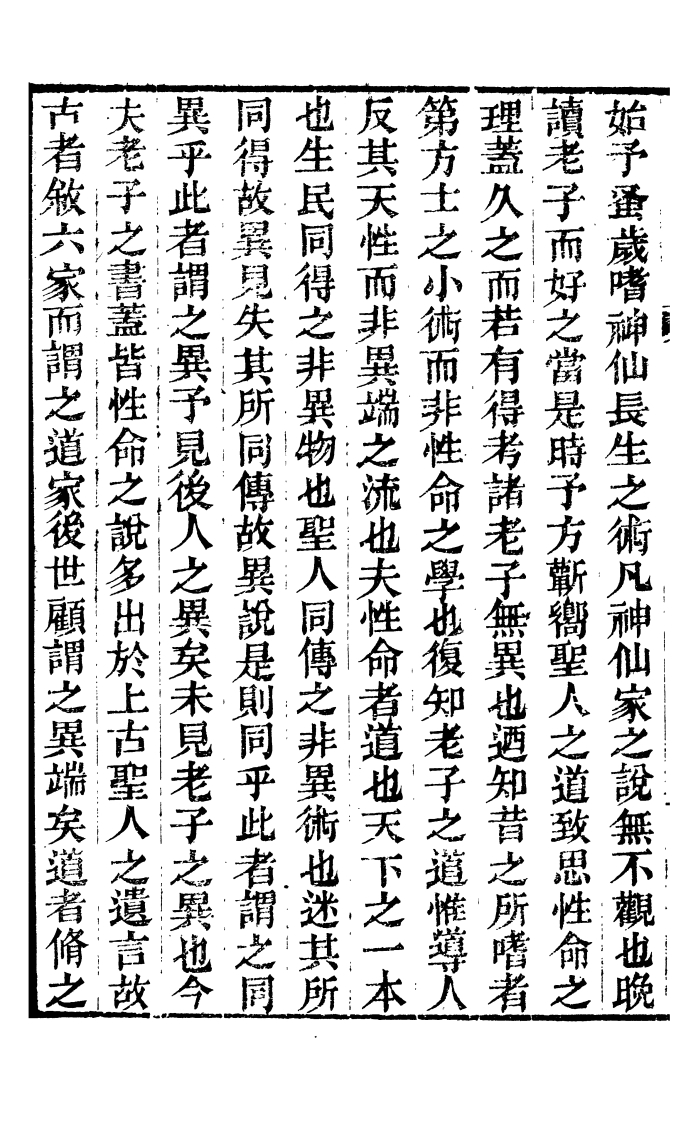 始予蚤歲嗜神仙長生之術凡神仙家之說無不觀也晚
讀老子而好之當是時予方蘄嚮聖人之道致思性命之
理蓋久之而若有得考諸老子無異也迺知昔之所嗜者
第方士之小術而非性命之學也復知老子之道惟導人
反其天性而非異端之流也夫性命者道也天下之一本
也生民同得之非異物也聖人同傳之非異術也迷其所
同得故異見失其所同傳故異說是則同乎此者謂之同
異乎此者謂之異予見後人之異矣未見老子之異也今
夫老子之書蓋皆性命之說多出於上古聖人之遺言故
古者敘六家而謂之道家後世顧謂之異端矣道者脩之